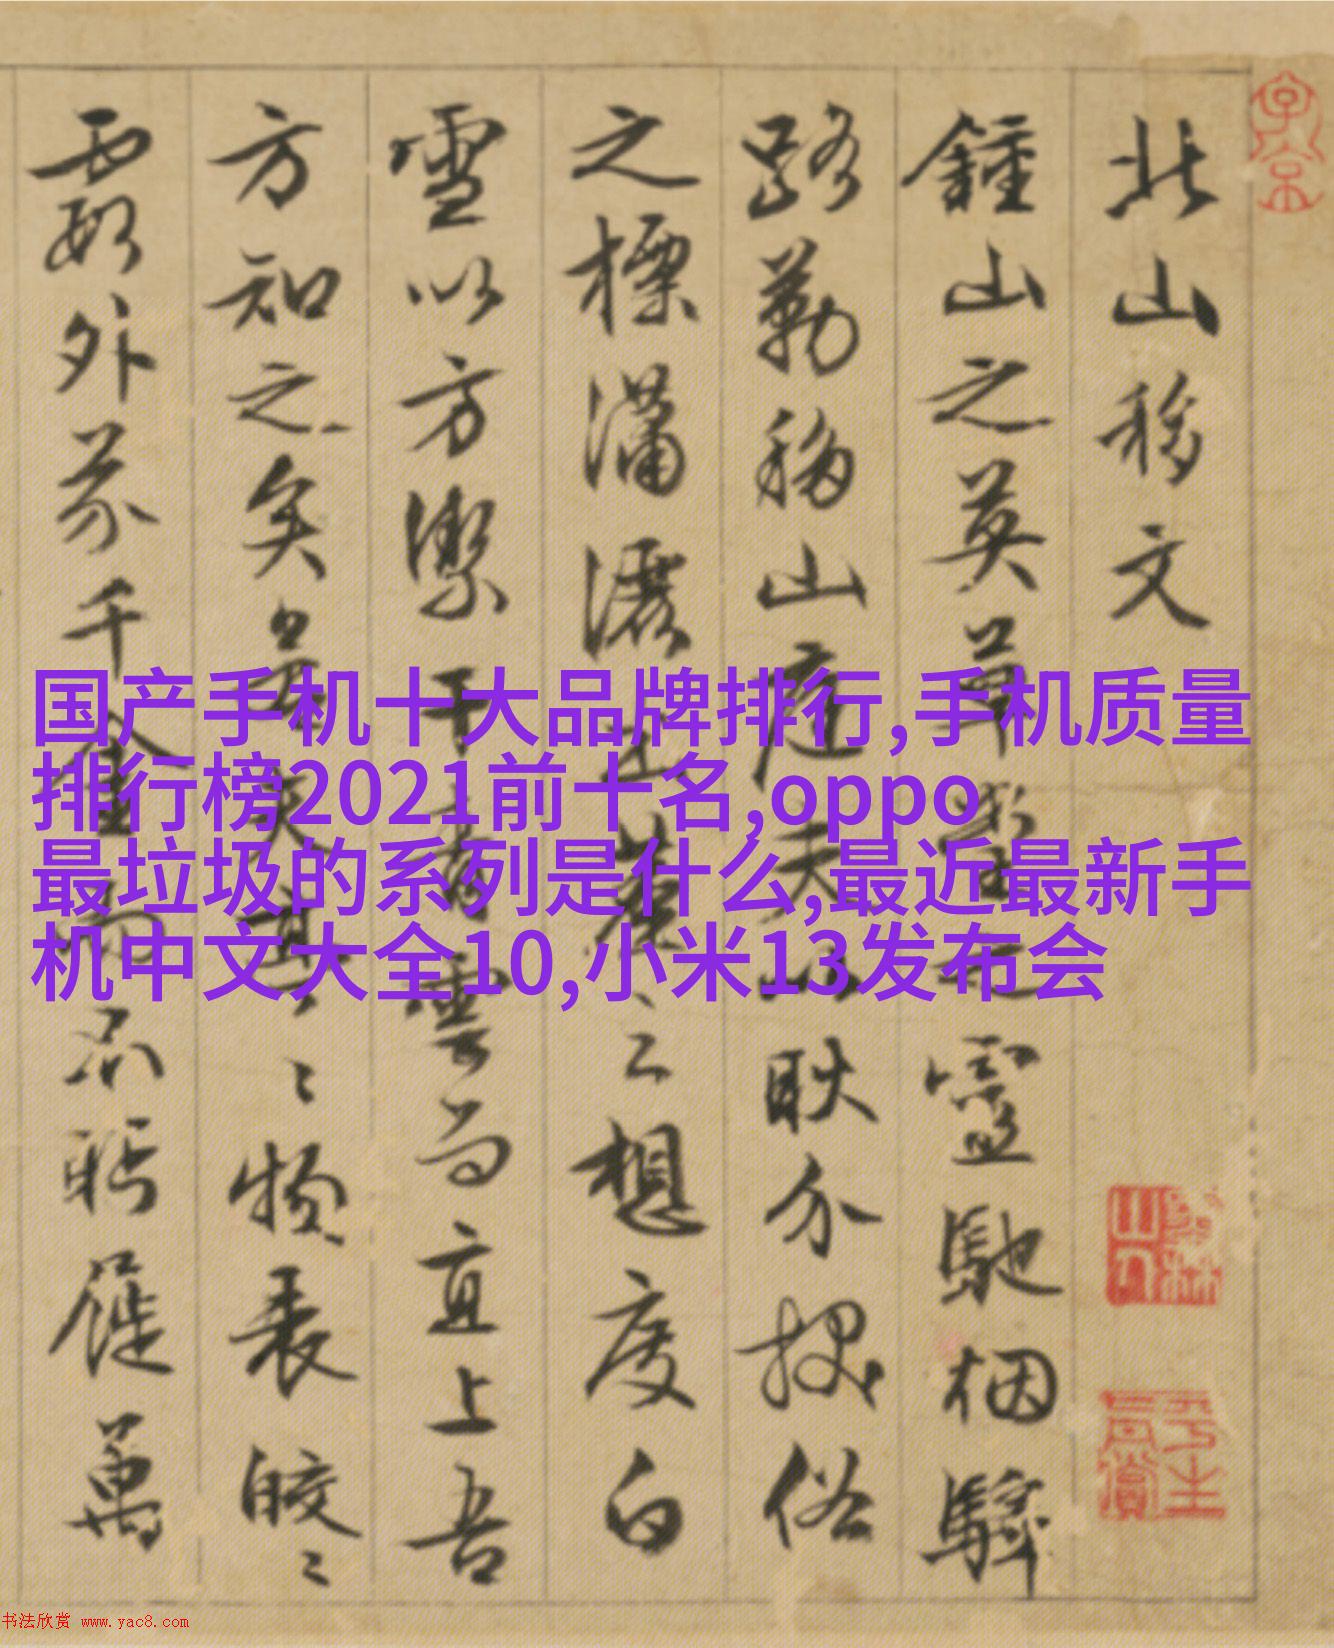 北山移文
鍾山之英草堂之靈馳烟驛
路勒移山庭夫以耿介拔俗
之標瀟灑出塵之想度白
雪以方潔干青雲而直上吾
方知之矣若其亭亭物表皎皎
霞外芥千金而不眄屣萬
国产手机十大品牌排行,手机质量
排行榜2021前十名,oppo
最垃圾的系列是什么,最近最新手
机中文大全10,小米13发布会
书法欣赏 www.yac8.com